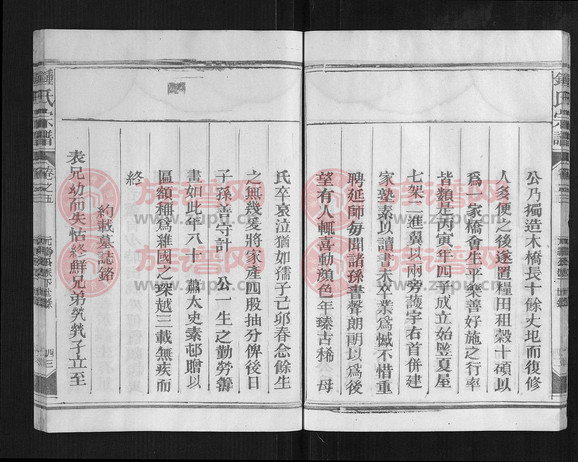 鍾氏宗譜
公乃獨造木橋長十餘丈圯而復修
人多便之後遂置糧田租穀十碩以
爲一家橋會生平樂善好施之行率
皆類是丙寅年四子成立始豎夏屋
七架二進翼以兩旁護宇右首併建
家塾素以讀書未卒業爲憾不惜重
聘延師每聞諸孫書聲朗朗以爲後
望有人輒喜動顏色年臻古稀 母
氏卒哀泣猶如孺子己卯春念餘生
之無幾爰將家產四股抽分俾後日
子孫善守計 公一生之勤勞籌
畫如此年八十 蕭太史素邨贈以
區額稱爲維國之琛越三載無疾而
終
約載墓誌銘
表兄幼而失怙終鮮兄弟煢煢子立至
鍾氏宗譜
卷之五
四三